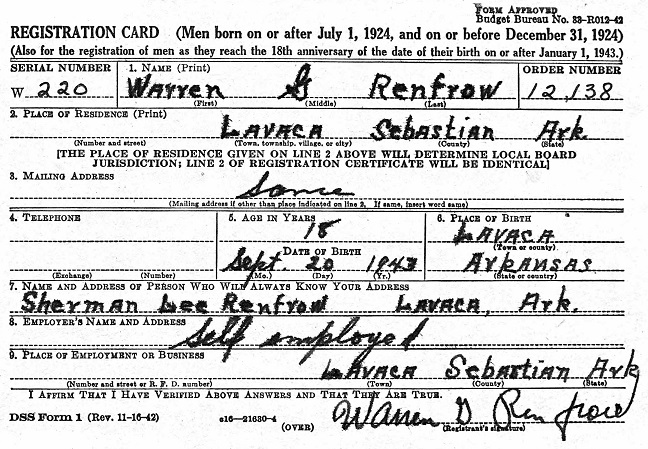 FORM APPROVED
Budget Bureau No. 33-R012-42
REGISTRATION CARD (Men born on or after July 1, 1924, and on or before December 31, 1924)
(Also for the registration of men as they reach the 18th anniversary of the date of their birth on or after January 1, 1943.)
SERIAL NUMBER 1. NAME (Print) ORDER NUMBER
W 220 Warren G Renfrow 12,138
(First) (Middle) (Last)
2. PLACE OF RESIDENCE (Print)
LAVACA Sebastian Ark.
(Number and street) (Town, township, village, or city) (County) (State)
[THE PLACE OF RESIDENCE GIVEN ON LINE 2 ABOVE WILL DETERMINE LOCAL BOARD
JURISDICTION; LINE 2 OF REGISTRATION CERTIFICATE WILL BE IDENTICAL]
3. MAILING ADDRESS
Same
(Mailing address if other than place indicated on line 2. If same, insert word same)
4. TELEPHONE 5. AGE IN YEARS 6. PLACE OF BIRTH
18 LAVACA
(Town or county)
DATE OF BIRTH
Sept. 20 1943 ArkANSAS
(Exchange) (Number) (Mo.) (Day) (Yr.) (State or country)
7. NAME AND ADDRESS OF PERSON WHO WILL ALWAYS KNOW YOUR ADDRESS
Sherman Lee Renfrow LAVACA, Ark.
8. EMPLOYER'S NAME AND ADDRESS
Self employed
9. PLACE OF EMPLOYMENT OR BUSINESS
LAVACA Sebastian Ark
(Number and street or R. F. D. number) (Town) (County) (State)
I AFFIRM THAT I HAVE VERIFIED ABOVE ANSWERS AND THAT THEY ARE TRUE.
DSS Form 1 (Rev. 11-16-42) c16—21630-4 (OVER) Warren G Renfrow
(Registrant's signature)